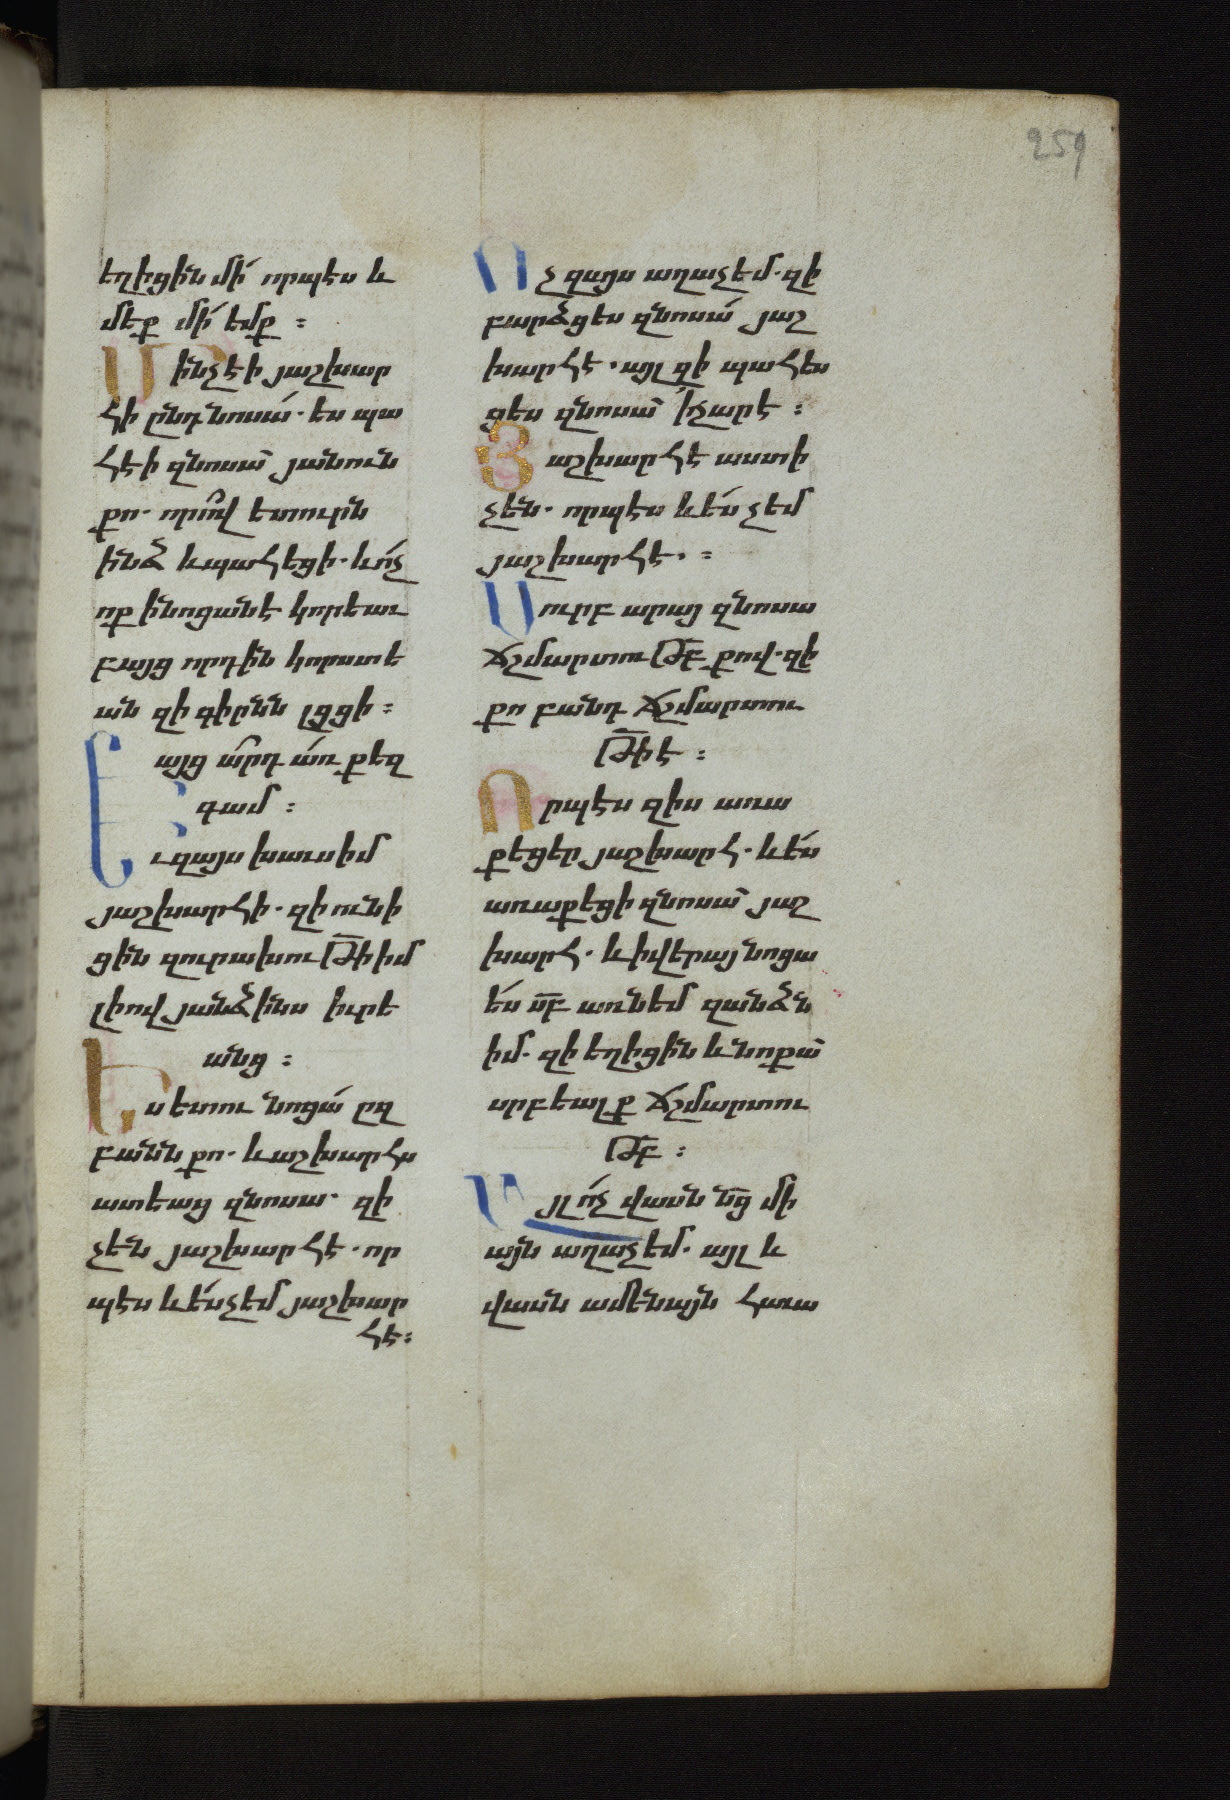 259
եղիցին մի՛ որպէս և
մեք մի՛ եմք ։
Մինչէի յաշխար
հի ընդ նոսա՛ . ես պա
հէի զնոսա՛ յանուն
քո . որո՛վ ետուրն
ինձ և պահեցի . և ո՛չ
ոք ի նոցանէ կորեաւ
բայց որդին կորստե
ան զի գիրնն լցցի ։
Բայց ա՛րդ ա՛ռ քեզ
գամ ։
Եւ զայս խաւսիմ
յաշխարհի . զի ունի
ցին զուրախու թի իմ
լիով յանձինս իւրե
անց ։
Ես ետու նոցա՛ ըզ
բանն քո . և աշխարհս
ատեաց զնոսա . զի
չեն յաշխարհէ . որ
պէս և ե՛ս չեմ յաշխար
հէ ։
Ոչ զայս աղաչեմ . զի
բարձցես զնոսա՛ յաշ
խարհէ . այլ զի պահես
ցես զնոսա՛ ի չարէ ։
Յաշխարհէ աստի
չեն . որպէս և ե՛ս չեմ
յաշխարհէ . ։
Սուրբ արայ զնոսա
ճշմարտու թբ քով . զի
քո բանդ ճշմարտու
թի է ։
Որպէս զիս առա
քեցեր յաշխարհ . և ե՛ս
առաքեցի զնոսա՛ յաշ
խարհ . և ի վերայ նոցա
ե՛ս սբ առնեմ զանձն
իմ . զի եղիցին և նոքա՛
սրբեալք ճշմարտու
թբ ։
Այլ ո՛չ վասն նց մի
այն աղաչեմ . այլ և
վասն ամենայն հաւա